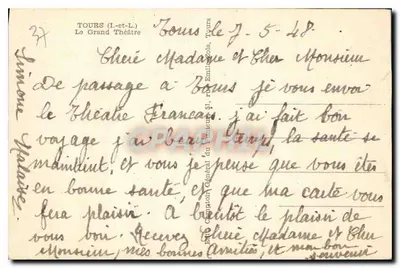 37
TOURS (I.-et-L.)
Le Grand Théâtre
Tours le 7-5-48
Cheré Madame et Cher Monsieur
De passage a Tours je vous envoi
le Théatre Francais. j'ai fait bon
voyage j'ai beau temps, la santé se
maintaint, et vous je pense que vous êtes
en bonne santé, et que ma carte vous
fera plaisir. A bientôt le plaisir de
vous voir. Recevez Cheré Madame et Cher
Monsieur, mes bonnes Amitiés, et mon bon
souvenir
Simone